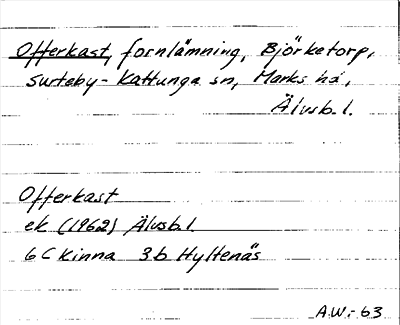 Offerkast, fornlämning, Björketorp,
Surteby-Kattunga sn, Marks hd,
Älvsb.l.
Offerkast
ek (1962) Älvsb.l
6 C Kinna 3b Hyltenäs
A.W.-63